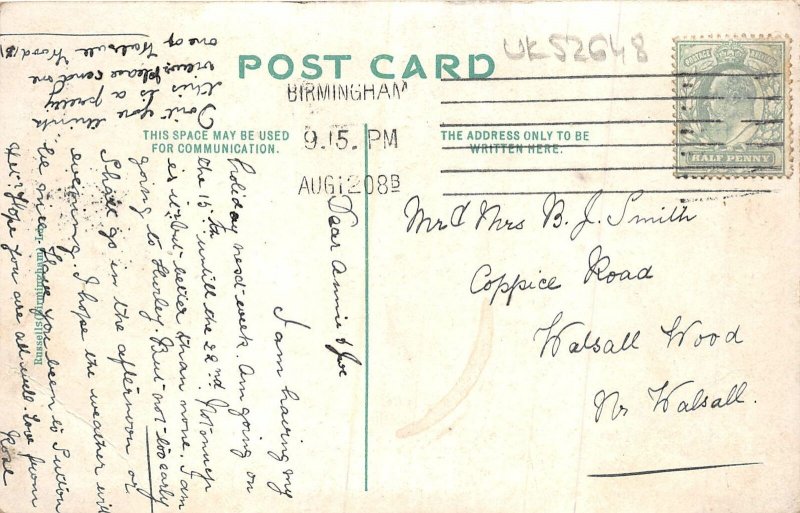 POST CARD
UK52648
BIRMINGHAM
9.15. PM
AUG 12 08 B
HALF PENNY
THIS SPACE MAY BE USED
FOR COMMUNICATION.
THE ADDRESS ONLY TO BE
WRITTEN HERE.
Mr & Mrs B. J. Smith
Coppice Road
Walsall Wood
Nr Walsall.
Dear Annie & Joe
I am having my
holiday next week. Am going on
the 15th untill the 22nd. Not
is it but better than none. I am
going to Hurley. But not too early
Shall go in the afternoon or
evening. I hope the weather will
be nice. Have you been to Sutton
yet? Hope you are all well. Love from
Rose
Don't you think
this is a pretty
view. Please send me
one of Walsall Wood
Russells